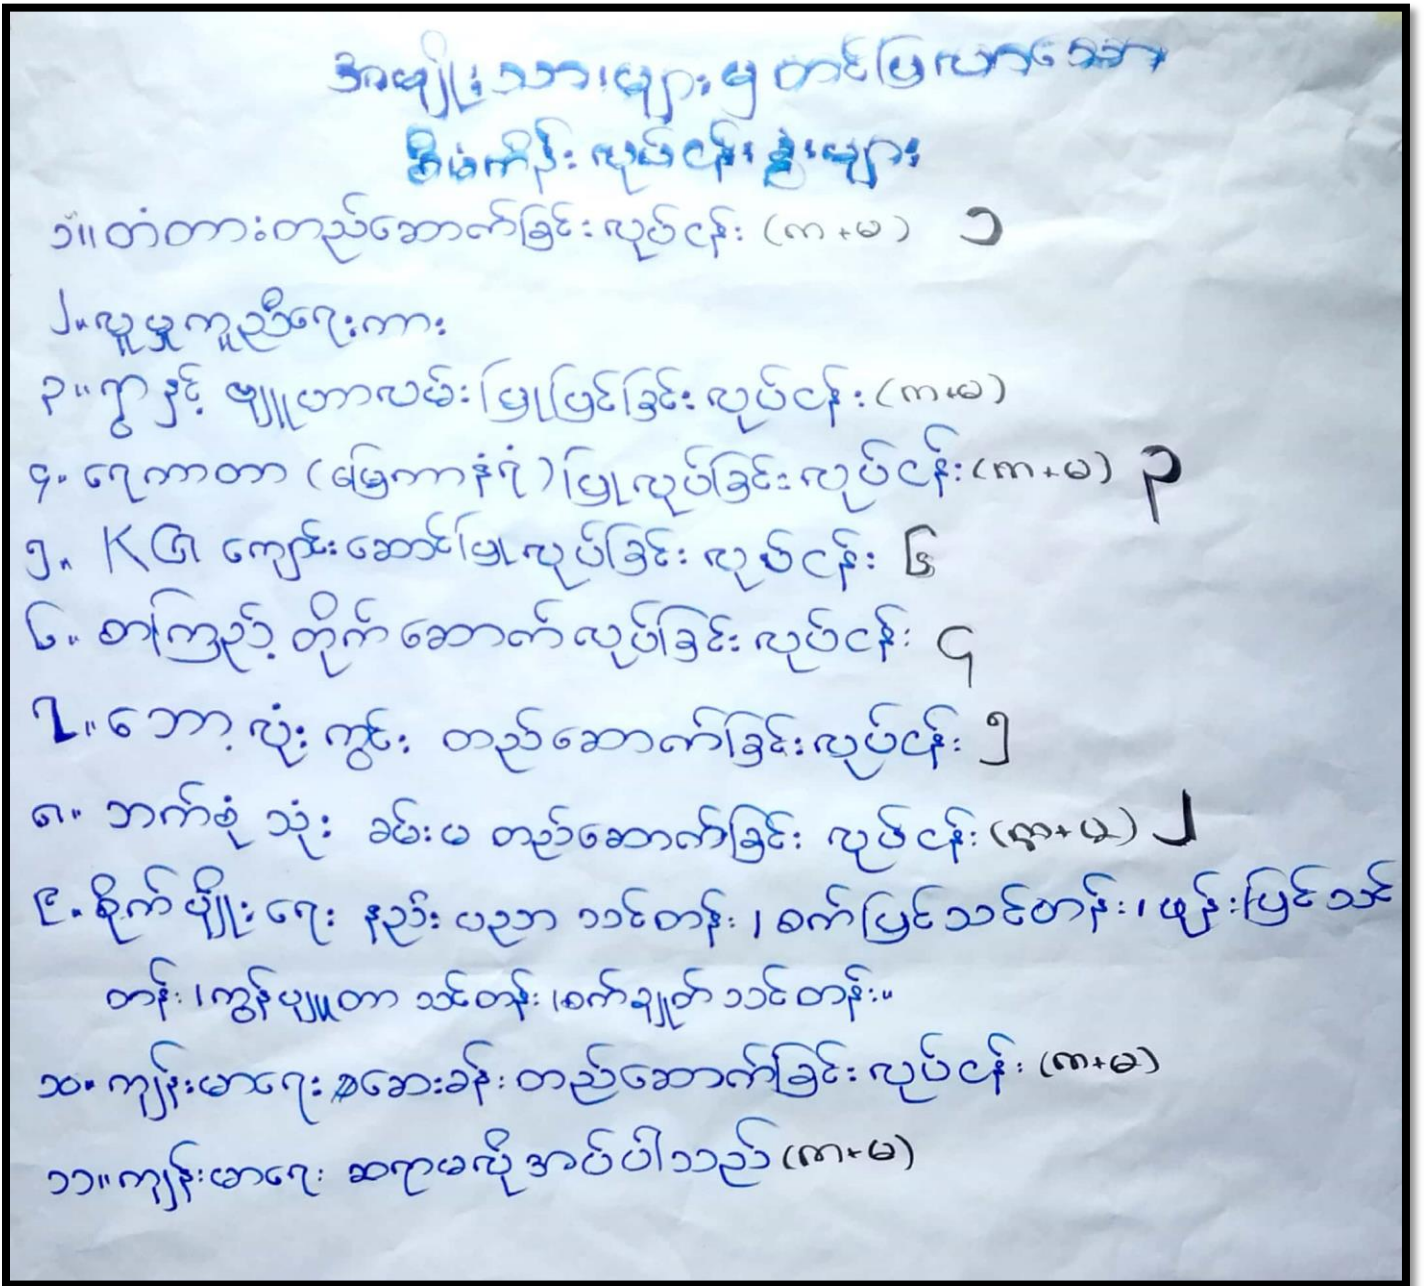 အမျိုးသားများမှ တင်ပြလာသော
စီမံကိန်း လုပ်ငန်းခွဲများ
၁။ တံတားတည်ဆောက်ခြင်းလုပ်ငန်း (ကာ+မ) ၁
၂။ လူမှုကူညီရေးကား
၃။ ရွာနှင့် ဗျူဟာလမ်းပြုပြင်ခြင်းလုပ်ငန်း (ကာ+မ)
၄။ ရေကာတာ (မြေကာနံရံ) ပြုလုပ်ခြင်းလုပ်ငန်း (ကာ+မ) ၃
၅။ KG ကျောင်းဆောင်ပြုလုပ်ခြင်း လုပ်ငန်း ၆
၆။ စာကြည့်တိုက်ဆောက်လုပ်ခြင်း လုပ်ငန်း ၄
၇။ ဘော့လုံးကွင်း တည်ဆောက်ခြင်းလုပ်ငန်း ၅
၈။ ဘက်စုံသုံး ခမ်းမ တည်ဆောက်ခြင်း လုပ်ငန်း (ကာ+မ) ၂
၉။ စိုက်ပျိုးရေး နည်းပညာ သင်တန်း၊ စက်ပြင်သင်တန်း၊ ဖုန်းပြင်သင်
တန်း၊ ကွန်ပျူတာ သင်တန်း၊ စက်ချုတ် သင်တန်း။
၁၀။ ကျန်းမာရေး ဆေးခန်းတည်ဆောက်ခြင်းလုပ်ငန်း (ကာ+မ)
၁၁။ ကျန်းမာရေး ဆရာမလိုအပ်ပါသည် (ကာ+မ)